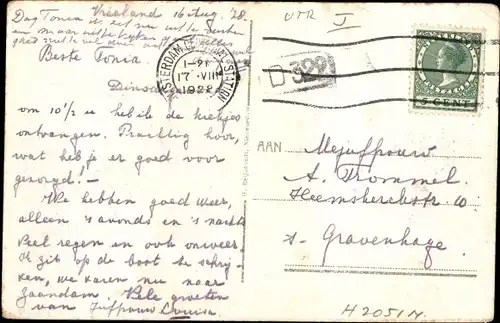 Vreeland 16 Aug '28.
Dag Tonia ik zit nu uit te rusten
en maar
Beste Tonia.
Dinsdag
om 10½ u heb ik de kiekjes
ontvangen. Prachtig hoor,
wat heb je er goed voor
gezorgd! —
We hebben goed weer,
alleen 's avonds en 's nachts
veel regen en ook onweer.
Ik zit op de boot te schrij-
ven, we varen nu naar
Zaandam. Vele groeten
van Juffrouw Louisa.
UTR I
AMSTERDAM CENTRAAL STATION
17. VIII
D 329
5 CENT
AAN
Mejuffrouw
A. Trommel.
Heemskerckstr. 10
's-Gravenhage.
H 2051 N.